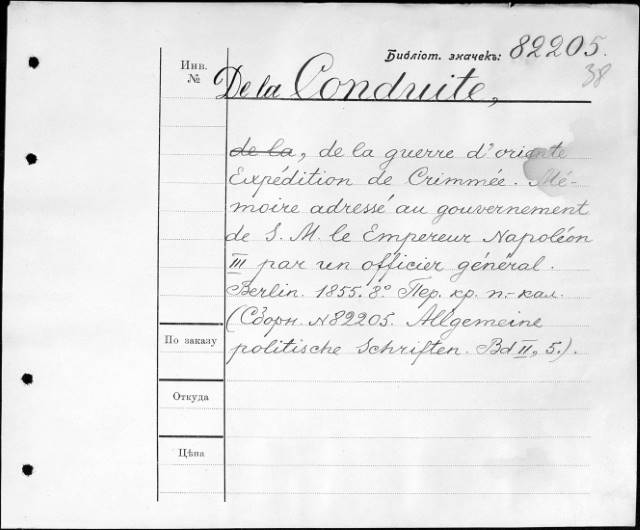 Библіот. значекъ: 82205.
38
Инв.
№
De la Conduite,
de la, de la guerre d'oriente
Expédition de Crimmée. Mé-
moire adressé au gouvernement
de S. M. le Empereur Napoléon
III par un officier général.
Berlin. 1855. 8° Пер. кр. п.-кал.
(Сборн. № 82205. Allgemeine
politische Schriften. Bd II, 5.).
По заказу
Откуда
Цѣна